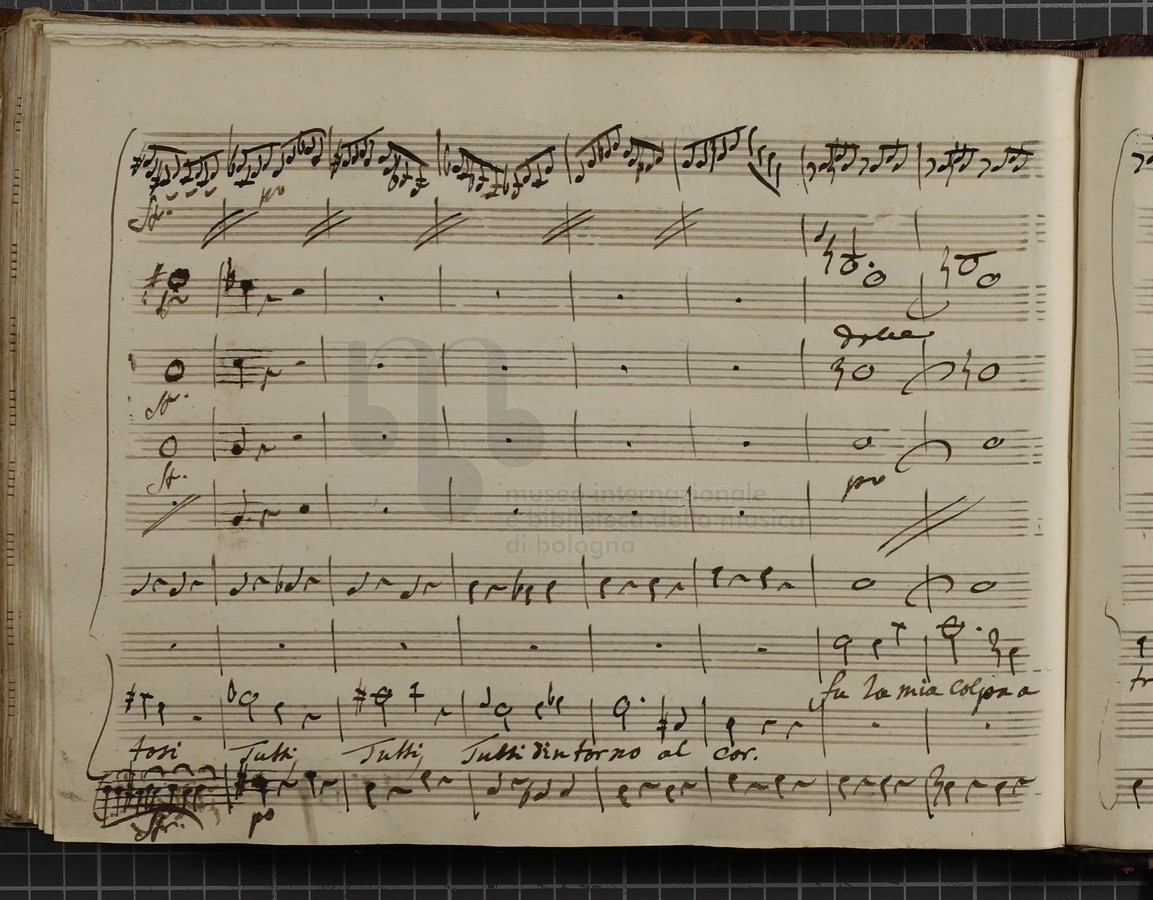 po
dolce
museo internazionale
e biblioteca della musica
di bologna
fu la mia colpa a
tosi Tutti, Tutti, Tutti dintorno al cor.
po